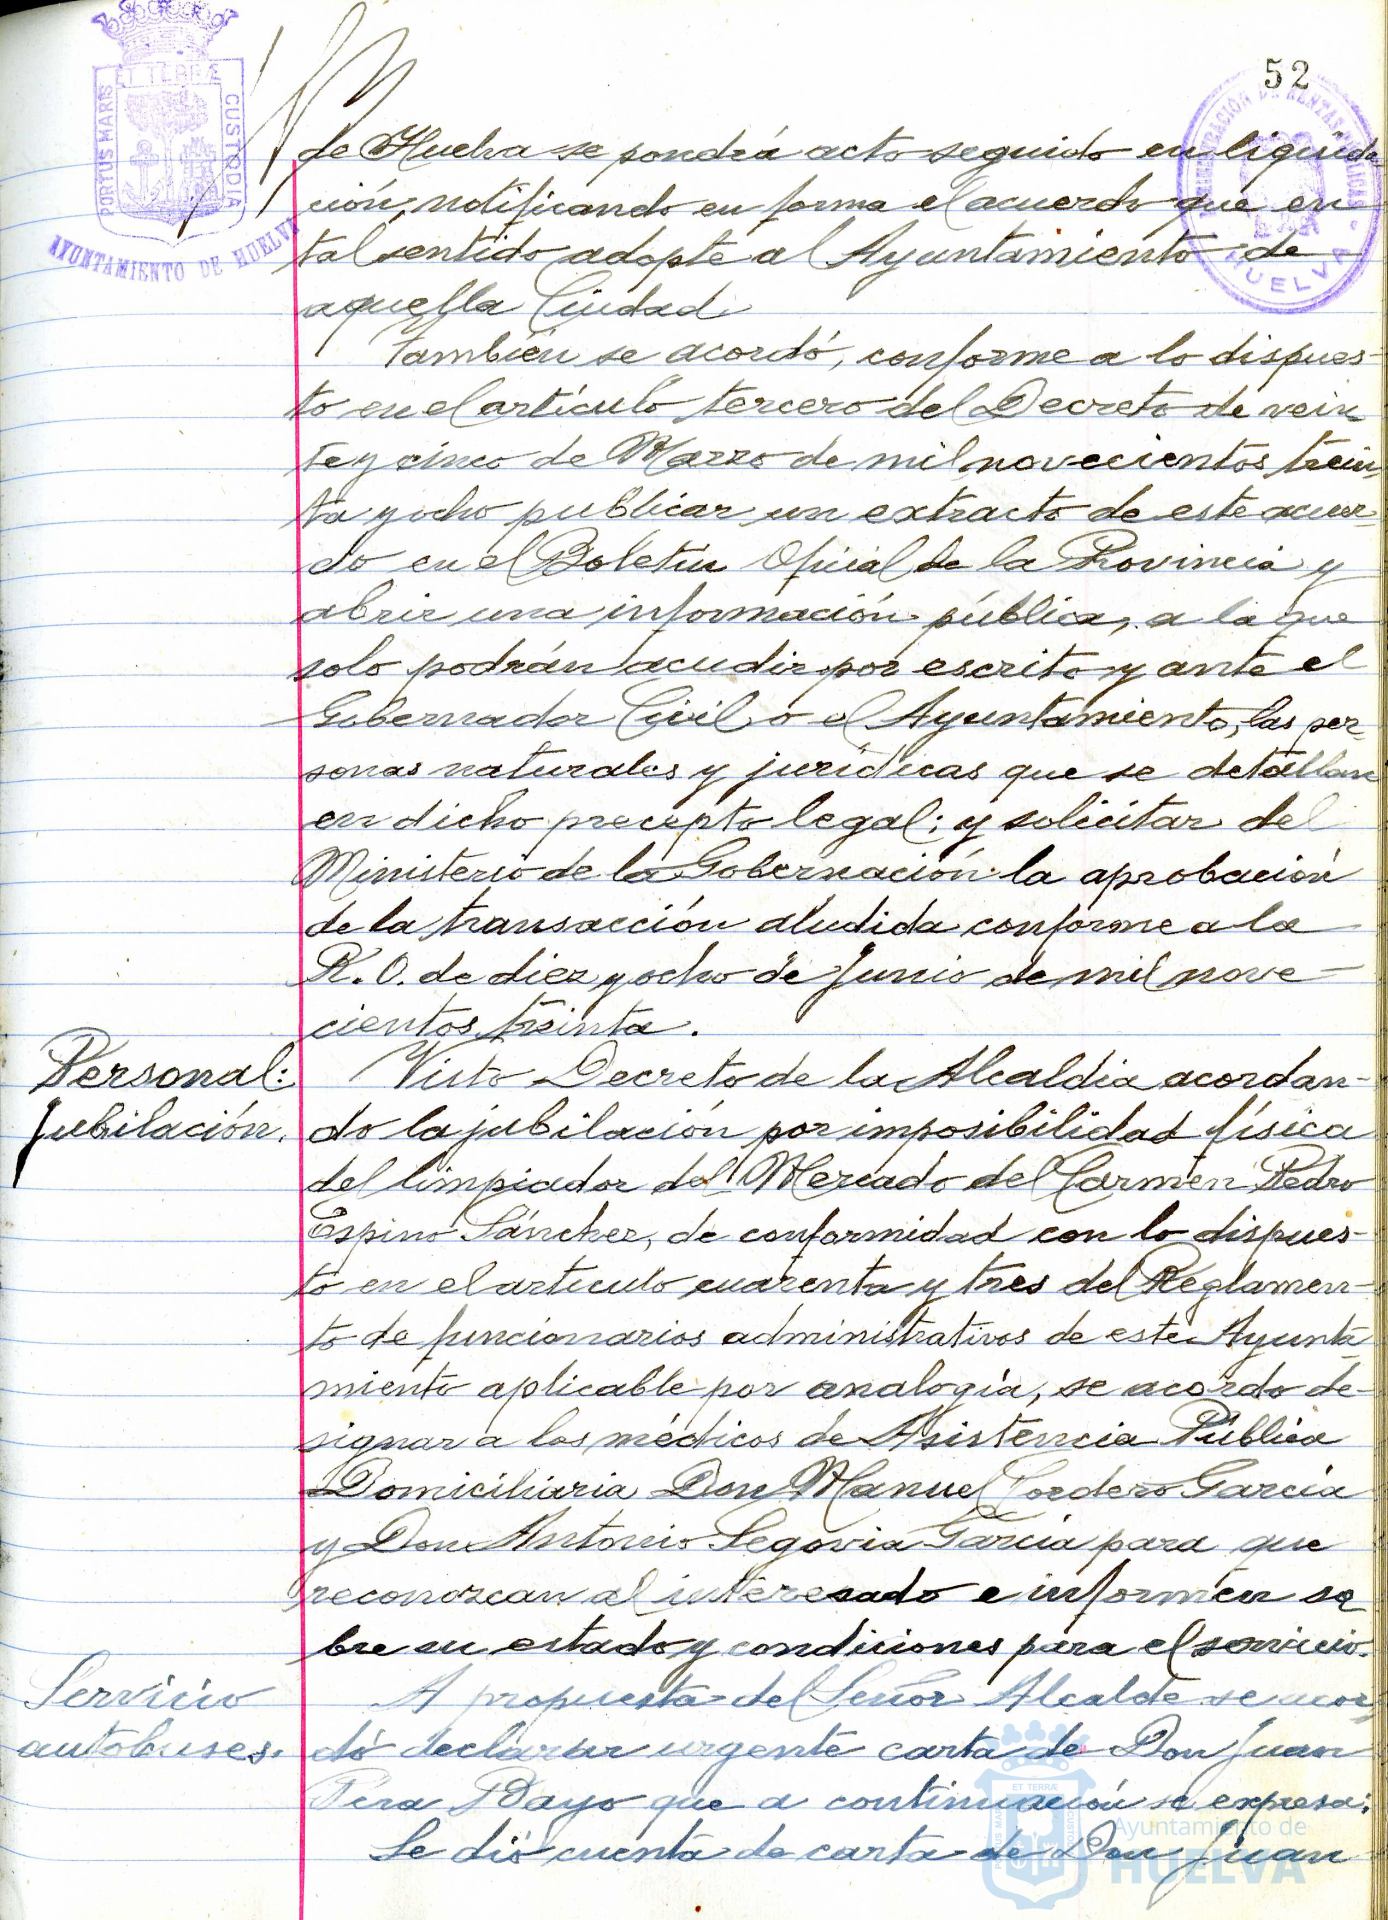 52
PORTUS MARIS ET TERRÆ CUSTODIA
AYUNTAMIENTO DE HUELVA
ADMINISTRACIÓN DE RENTAS PÚBLICAS
HUELVA
de Huelva se pondrá acto seguido en liquida
ción, notificando en forma el acuerdo que en
tal sentido adopte al Ayuntamiento de
aquella Ciudad
También se acordó, conforme a lo dispues-
to en el artículo tercero del Decreto de vein
te y cinco de Marzo de mil novecientos trein
ta y ocho publicar un extracto de este acuer-
do en el Boletín Oficial de la Provincia y
abrir una información pública, a la que
solo podrán acudir por escrito y ante el
Gobernador Civil o el Ayuntamiento, las per-
sonas naturales y jurídicas que se detallan
en dicho precepto legal; y solicitar del
Ministerio de la Gobernación la aprobación
de la transacción aludida conforme a la
R. O. de diez y ocho de Junio de mil nove-
cientos treinta.
Personal:
Jubilación.
Visto Decreto de la Alcaldía acordan-
do la jubilación por imposibilidad física
del limpiador del Mercado del Carmen Pedro
Espino Sánchez, de conformidad con lo dispues-
to en el artículo cuarenta y tres del Reglamen-
to de funcionarios administrativos de este Ayunta
miento aplicable por analogía, se acordo de-
signar a los médicos de Asistencia Pública
Domiciliaria Don Manuel Cordero García
y Don Antonio Segovia García para que
reconozcan al interesado e informen so
bre su estado y condiciones para el servicio.
Servicio
autobuses.
A propuesta del Señor Alcalde se acor
dó declarar urgente carta de Don Juan
Pera Bayo que a continuación se expresa:
Se dió cuenta de carta de Don Juan
ET TERRÆ
Ayuntamiento de
HUELVA